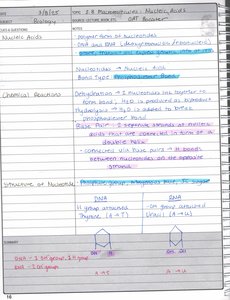 DATE 3/8/25 TOPIC 1.8 Macromolecules: Nucleic Acids
SUBJECT Biology SOURCE: LECTURE, BOOK, ETC. OAT Booster
NOTES
Nucleic Acids
- polymer form of nucleotides
- DNA and RNA
Nucleotides → Nucleic Acid
Bond type: Phosphodiester Bonds
Chemical Reactions
Dehydration → 2 nucleotides
form bond, H₂O is produced as byproduct
Hydrolysis → H₂O is added to break
phosphodiester bond
Base Pair - 2 separate strands of nucleic
acids that are connected in form of a
double helix
- connected via base pairs → H bonds
between nucleotides on the opposite
strands
Structure of Nucleotide
Phosphate group, Nitrogenous base, 5C sugar
DNA RNA
H group attached - OH group attached
Thymine (A→T) Uracil (A→U)
SUMMARY
DNA - 1 OH group, 1 H group
RNA - 2 OH groups
OH H OH OH
A→T A→U
18